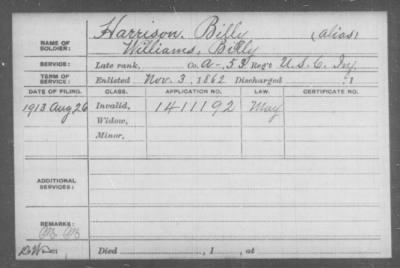 NAME OF SOLDIER: Harrison, Billy (alias)
Williams, Billy
SERVICE: Late rank, Co. A-53 Reg't U.S.C. Inf.
TERM OF SERVICE: Enlisted Nov. 3, 1862 Discharged , 1
DATE OF FILING. CLASS. APPLICATION NO. LAW. CERTIFICATE NO.
1913 Aug 26 Invalid, 1411192 May
Widow,
Minor,
ADDITIONAL SERVICES:
REMARKS:
Died , 1 , at